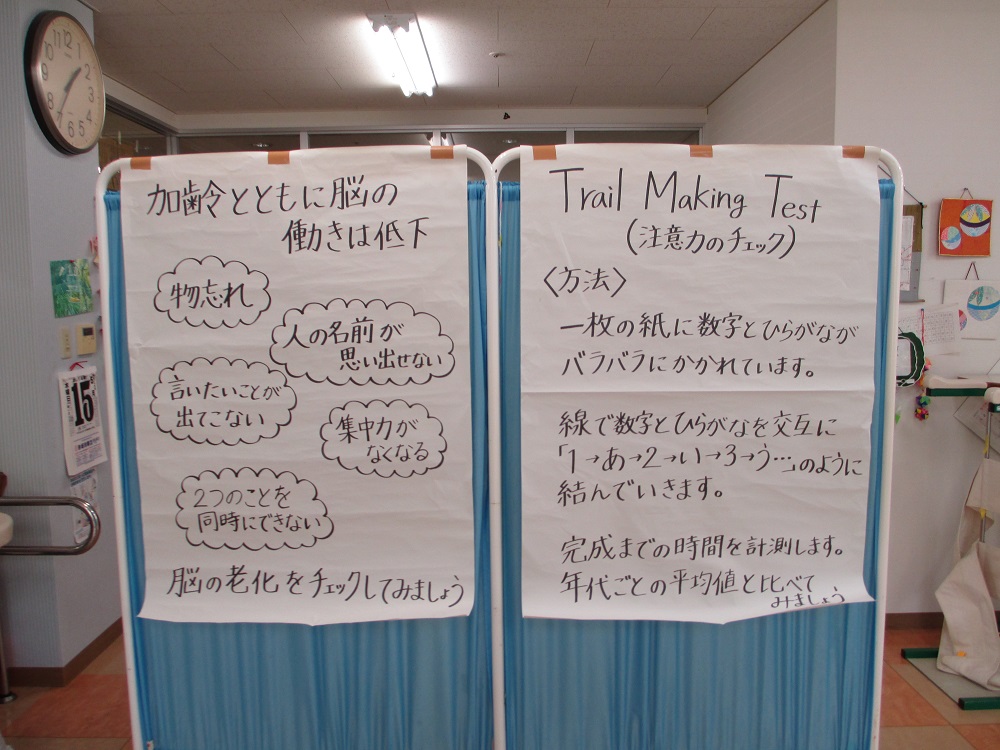 加齢とともに脳の
働きは低下
物忘れ
人の名前が
思い出せない
言いたいことが
出てこない
集中力が
なくなる
2つのことを
同時にできない
脳の老化をチェックしてみましょう
Trail Making Test
(注意力のチェック)
〈方法〉
一枚の紙に数字とひらがなが
バラバラにかかれています。
線で数字とひらがなを交互に
「1→あ→2→い→3→う…」のように
結んでいきます。
完成までの時間を計測します。
年代ごとの平均値と比べて
みましょう
12
11
10
9
8
7
6
5
4
3
2
1
15